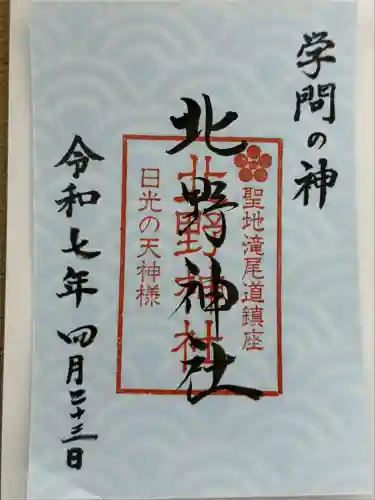 学問の神
聖地滝尾道鎮座
北野神社
北野神社
日光の天神様
令和七年 四月二十三日